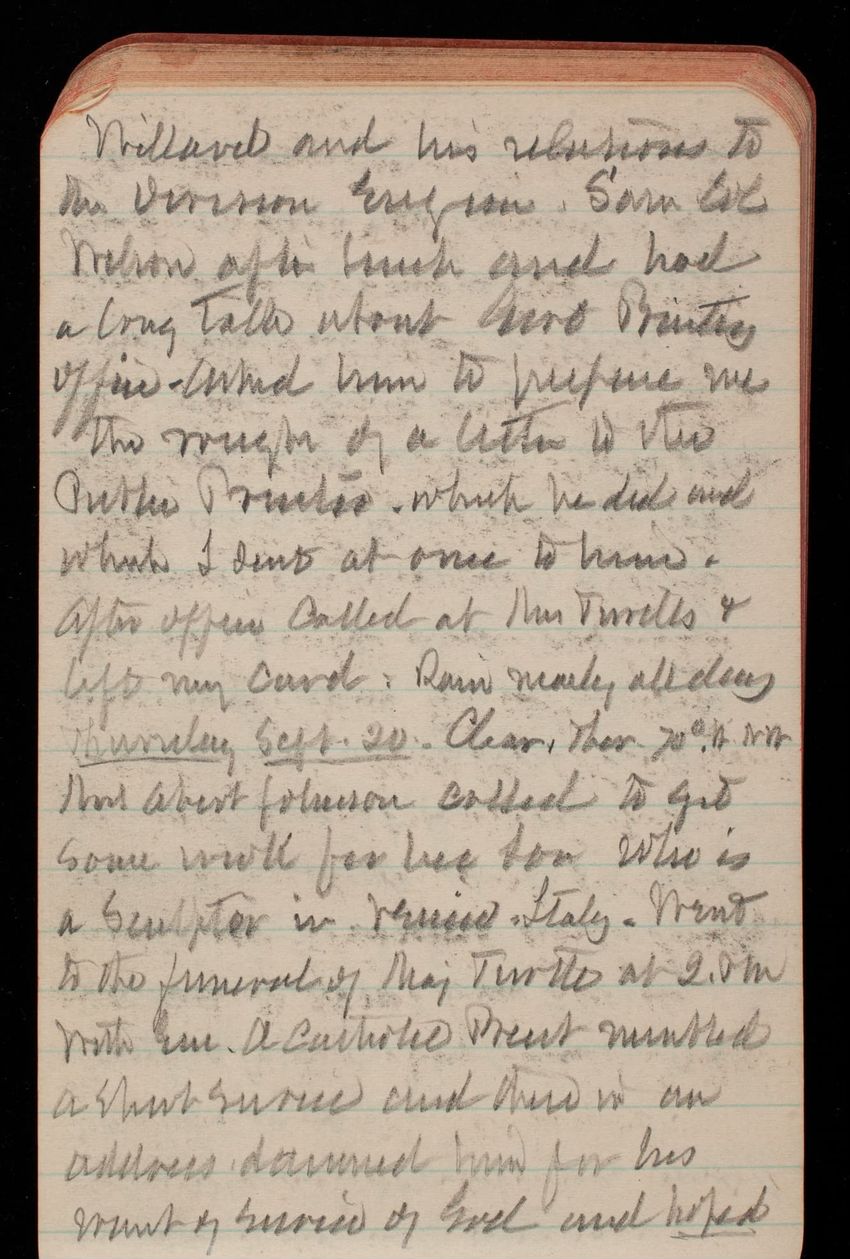 Willard and his relations to
the Division Engineer. Saw Col
Wilson after lunch and had
a long talk about Govt Printing
office. Asked him to prepare me
the rough of a letter to the
Public Printer. which he did and
which I sent at once to him.
After office Called at Mrs Turtles &
left my Card: Rain nearly all day
Thursday Sept. 20. Clear, Ther 70°.
Mrs Abert Johnson called to get
some work for her son who is
a Sculptor in Venice. Italy. Went
to the funeral of Maj Turtle at 2. P M
With Em. A Catholic Priest mumbled
a Short Service and then in an
address damned him for his
want of Service of God and hoped